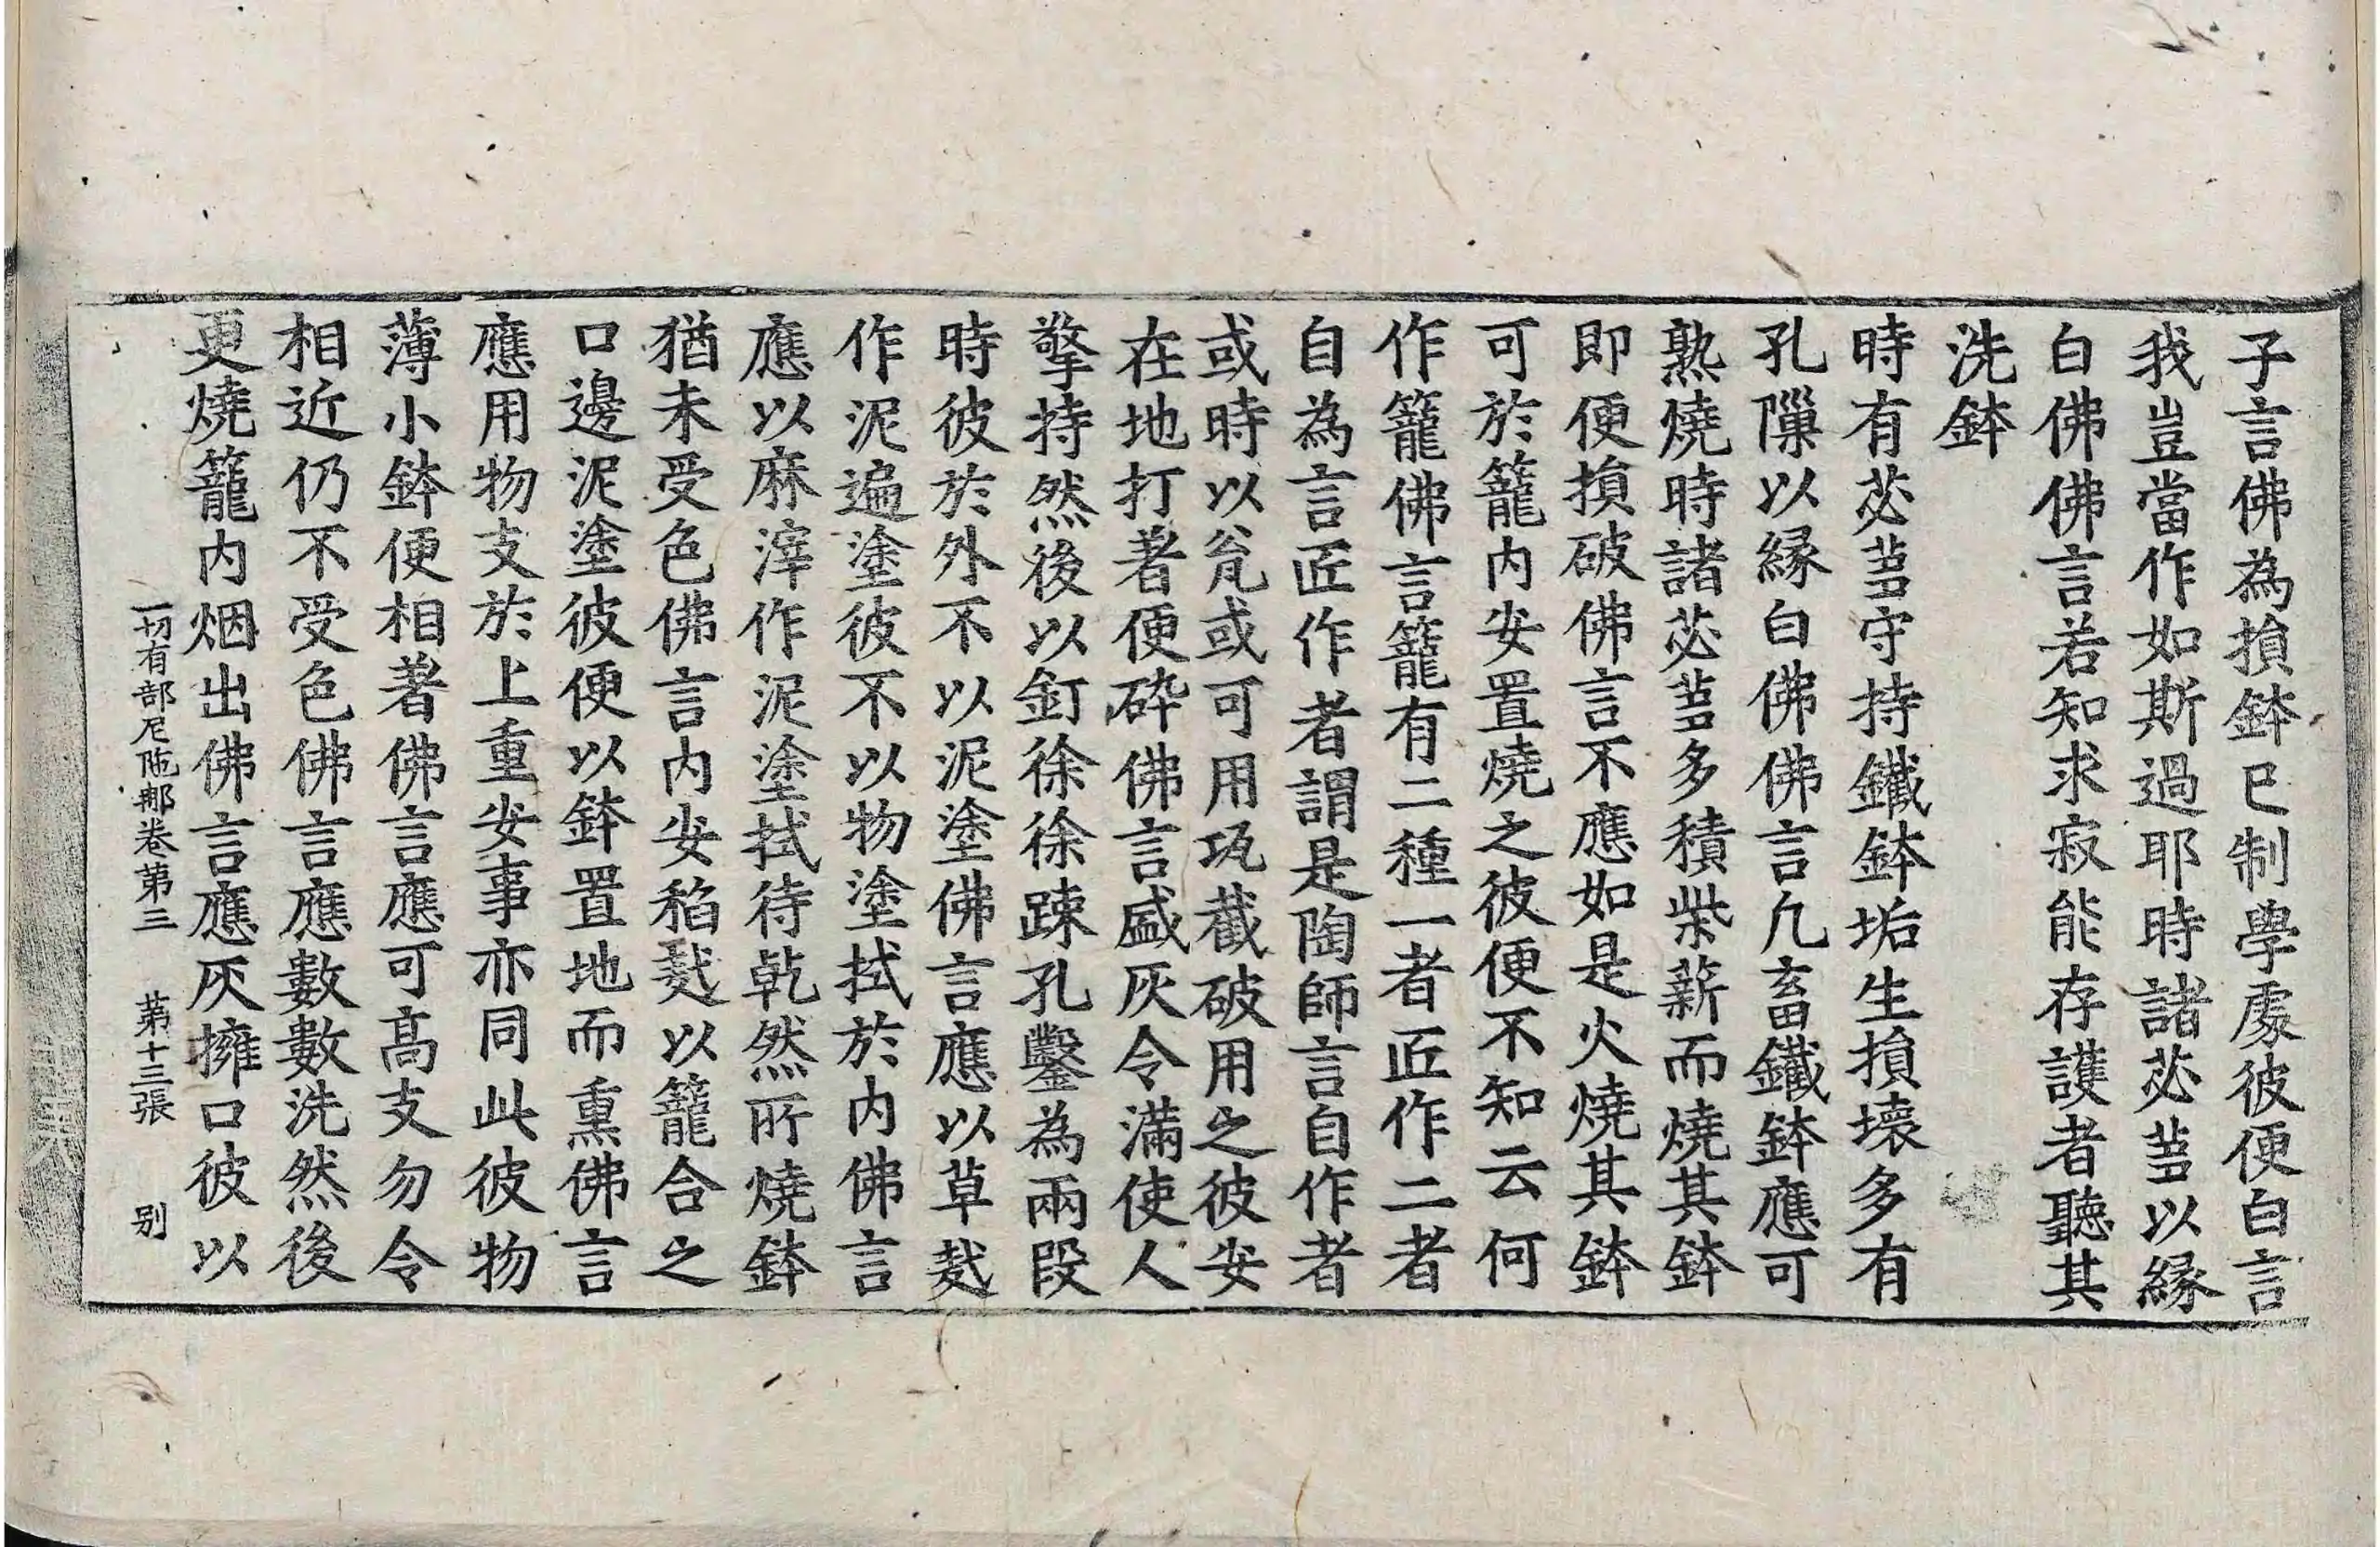 子言佛為損鉢已制學處彼便白言
我豈當作如斯過耶時諸苾蒭以緣
白佛佛言若知求寂能存護者聽其
洗鉢
時有苾蒭守持鐵鉢垢生損壞多有
孔隟以緣白佛佛言凡畜鐵鉢應可
熟燒時諸苾蒭多積柴薪而燒其鉢
即便損破佛言不應如是火燒其鉢
可於籠內安置燒之彼便不知云何
作籠佛言籠有二種一者匠作二者
自為言匠作者謂是陶師言自作者
或時以瓮或可用瓨截破用之彼安
在地打著便碎佛言盛灰令滿使人
擎持然後以釘徐徐踈孔鑿為兩段
時彼於外不以泥塗佛言應以草𪍿
作泥遍塗彼不以物塗拭於內佛言
應以麻滓作泥塗拭待乾然所燒鉢
猶未受色佛言內安稻𪍿以籠合之
口邊泥塗彼便以鉢置地而熏佛言
應用物支於上重安事亦同此彼物
薄小鉢便相著佛言應可高支勿令
相近仍不受色佛言應數數洗然後
更燒籠內烟出佛言應灰擁口彼以
一切有部尼陁那卷第三　第十三張　别